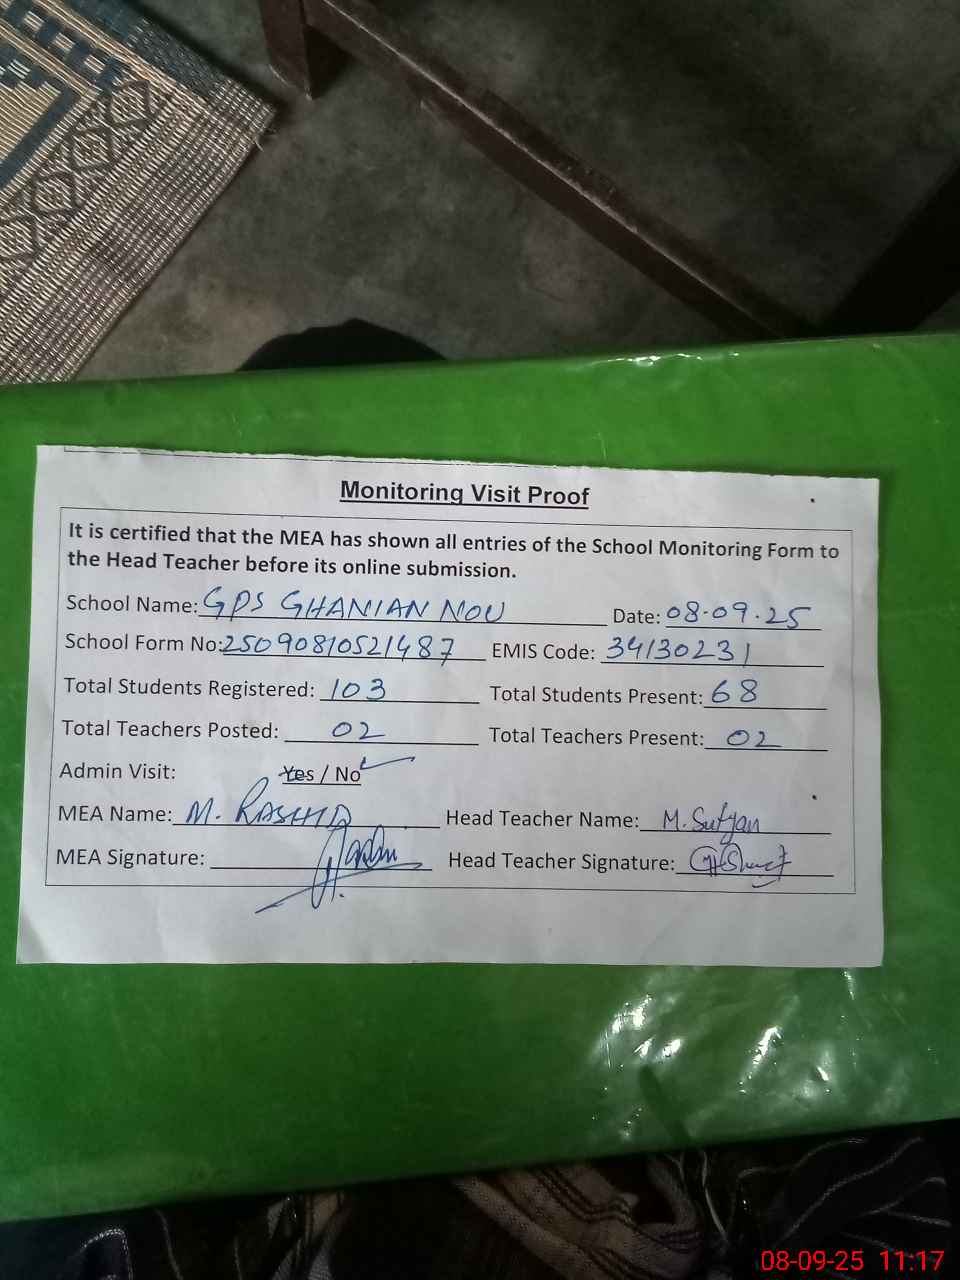 Monitoring Visit Proof
It is certified that the MEA has shown all entries of the School Monitoring Form to
the Head Teacher before its online submission.
School Name: GPS GHANIAN NOU Date: 08-09-25
School Form No: 25090810521487 EMIS Code: 34130231
Total Students Registered: 103 Total Students Present: 68
Total Teachers Posted: 02 Total Teachers Present: 02
Admin Visit: Yes / No
MEA Name: M. RASHID Head Teacher Name: M. Sufyan
MEA Signature: Head Teacher Signature:
08-09-25 11:17